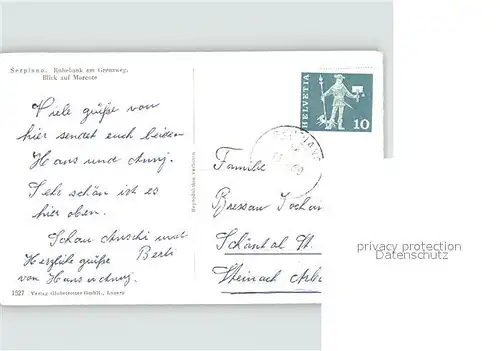 Serpiano. Ruhebank am Grenzweg.
Blick auf Morcote
Viele grüße von
hier sendet euch beiden
Hans und Anny.
Sehr schön ist es
hier oben.
Schau Anschi und
Herzliche grüße Berti
von Hans u Anny.
1527 Verlag Globetrotter GmbH., Luzern
Reproduktion verboten
HELVETIA
10
Familie
Bressan
Steinach
privacy protection
Datenschutz